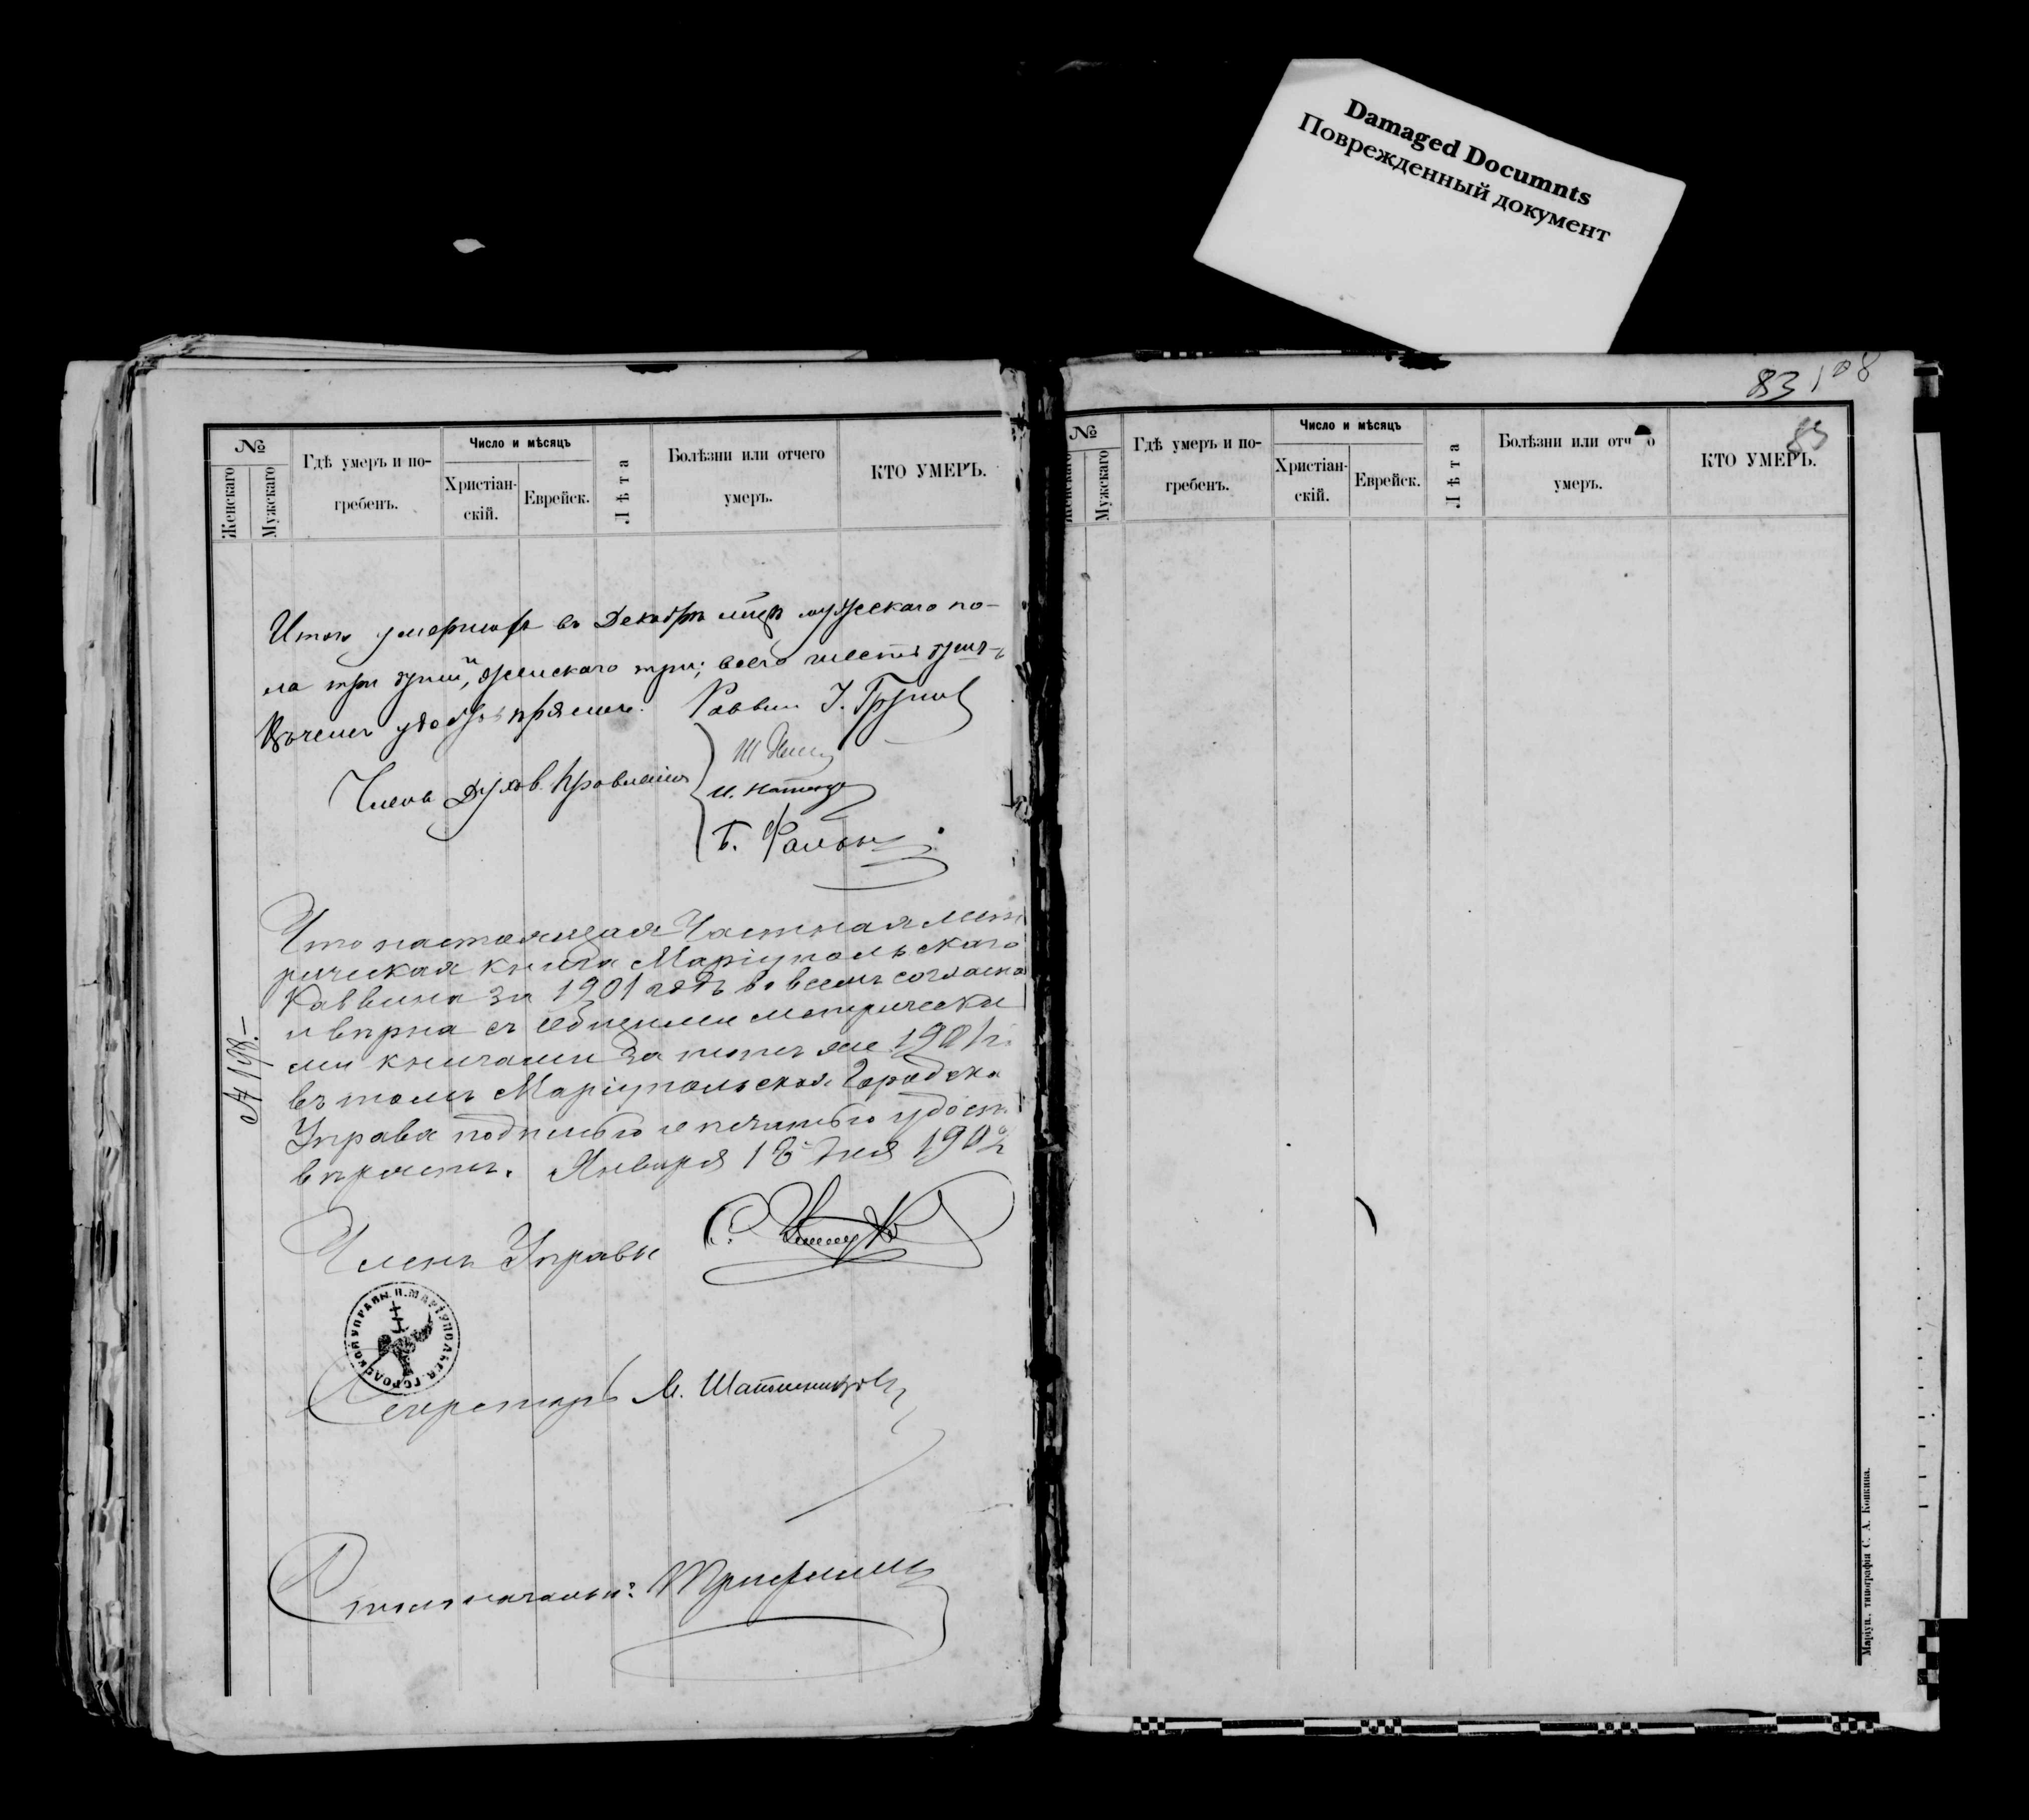 Damaged Documnts
Поврежденный документ
83 108
83
№
Женскаго
Мужскаго
Гдѣ умеръ и по-
гребенъ.
Число и мѣсяцъ
Христіан-
скій.
Еврейск.
Лѣта
Болѣзни или отчего
умеръ.
КТО УМЕРЪ.
Итого умершихъ въ Декабрѣ мцѣ мужескаго по-
ла три душі, женскаго три; всего шесть душъ
Въ чемъ удостовѣряемъ. Раввин
Члены Духов. Правленія
Что настоящая Частная мет
рическая книга Маріупольскаго
Раввина за 1901 годъ во всемъ согласна
и вѣрна съ общими метрически
ми книгами за тотъ же 1901 г.
въ томъ Маріупольская Городска
Управа подписью и печатью удост
вѣряетъ. Января 18 дня 1902
№ 198.-
Членъ Управы
ГОРОДСКОЙ УПРАВЫ
Секретарь
Столоначальн:
№
Женскаго
Мужскаго
Гдѣ умеръ и по-
гребенъ.
Число и мѣсяцъ
Христіан-
скій.
Еврейск.
Лѣта
Болѣзни или отч о
умеръ.
КТО УМЕРЪ.
Маріуп., типографія С. А. Копкина.